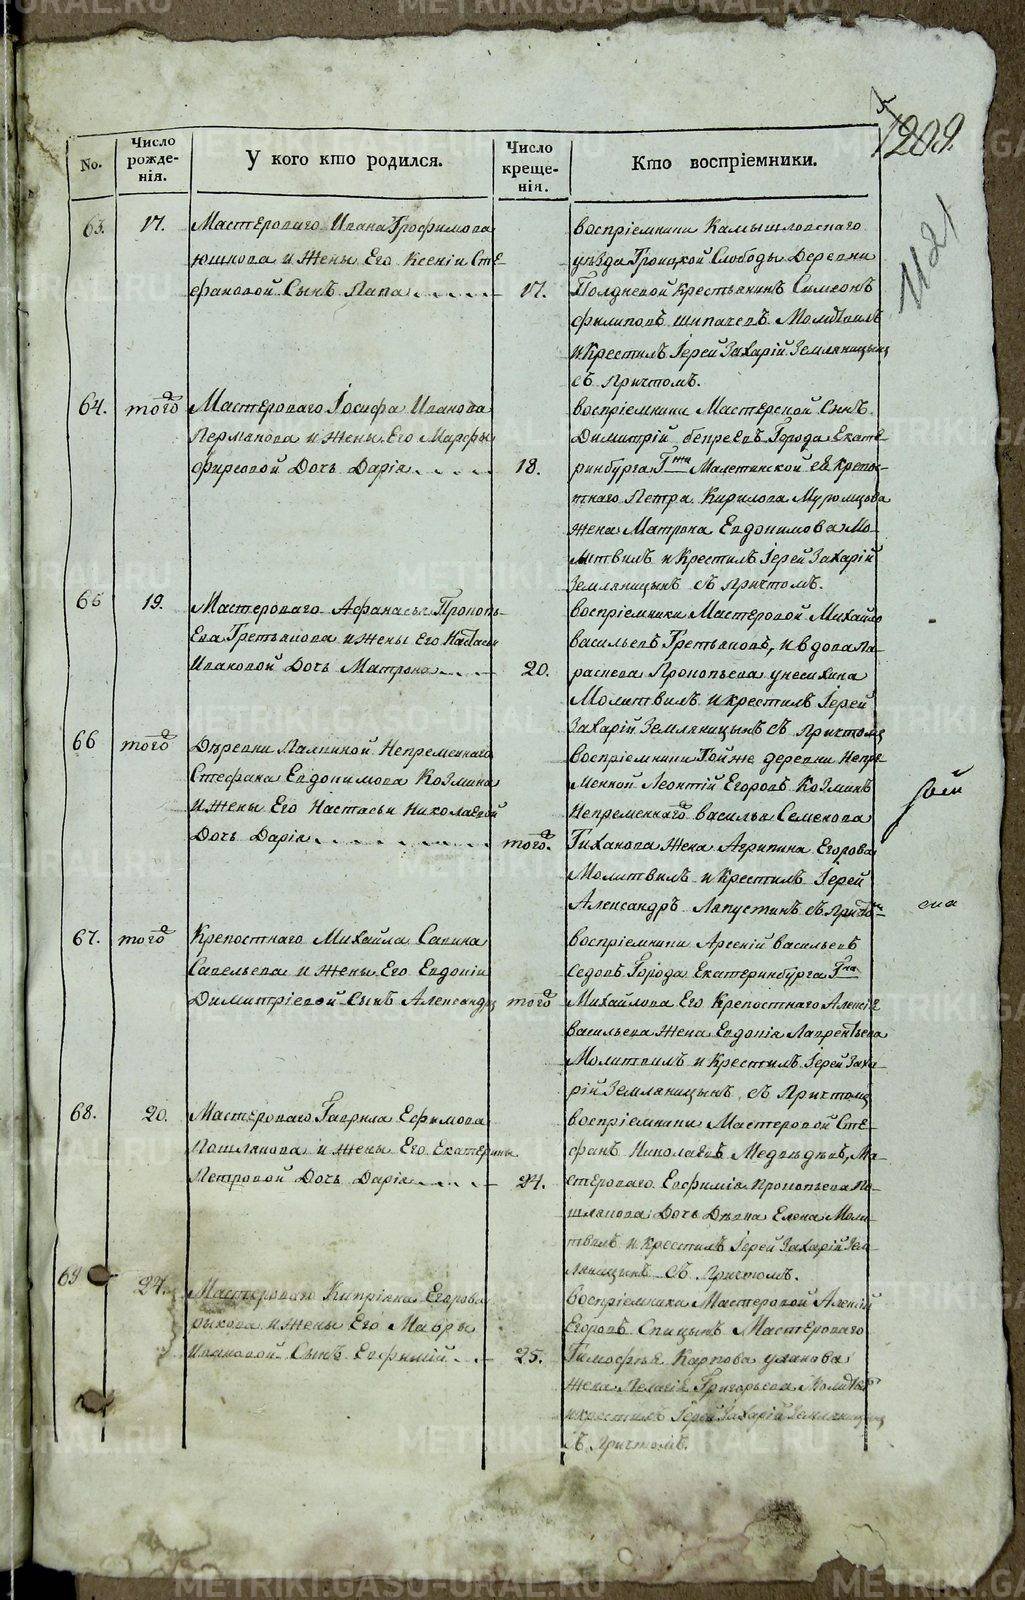 1209.
1121
No.
Число рожде-нія.
У кого кто родился.
Число креще-нія.
Кто воспріемники.
63.
17.
Мастероваго Ивана Трофимова
юшкова и жены Его Ксеніи Сте
фановой Сынъ Папа
17.
воспріемники Камышловскаго
уѣзда Троицкой Слободы Деревни
Полдневой крестьянинъ Симеонъ
филиповъ шипачевъ. Молитвилъ
и Крестилъ Іерей Захарій Земляницынъ
съ Причтомъ.
64.
того
Мастероваго Іосифа Иванова
Пермякова и жены Его Марфы
фирсовой Дочь Дарія
18.
воспріемники Мастерской сынъ
Димитрій Города Екате
ринбурга Гжи ея крепос-
тнаго Петра Кирилова Муромцова
жена Матрона Евдокимова Мо-
литвилъ и крестилъ Іерей Захарій
Земляницынъ съ Причтомъ.
65
19.
Мастероваго Афанасья Прокопь-
ева Третьякова и жены его Настасьи
Ивановой Дочь Матрона
20.
воспріемники Мастеровой Михайло
васильевъ Третьяковъ, и вдова Па-
раскева Прокопьева
Молитвилъ и крестилъ Іерей
Захарій Земляницынъ съ Причтомъ
66
того
Деревни Непременнаго
Стефана Евдокимова Козмина
и жены Его Настасьи Николаевой
Дочь Дарія
того.
воспріемники Той же деревни Непре
менной Леонтій Егоровъ Козминъ
Непременнаго василья Семенова
Тиханова жена Агрипина Егорова
Молитвилъ и крестилъ Іерей
Александръ Ляпустинъ съ Причтом
67.
того
Крепостнаго Михайла Савина
Савельева и жены Его Евдокіи
Димитріевой Сынъ Александръ
того
воспріемники Арсеній васильевъ
Седовъ Города Екатеринбурга Гна
Михайлова Его Крепостнаго Алексія
васильева жена Евдокія Лаврентьева
Молитвилъ и крестилъ Іерей Заха-
рій Земляницынъ съ Причтомъ
68.
20.
Мастероваго Гаврила Ефимова
Пошлякова и жены Его Екатерины
Петровой Дочь Дарія
24.
воспріемники Мастеровой Сте-
фанъ Николаевъ Медведевъ, Ма-
стероваго Евфимія Прокопьева По-
шлякова Дочь Девка Елена Моли-
твилъ и крестилъ Іерей Захарій Зем-
ляницынъ съ Причтомъ.
69
24.
Мастероваго Кипріяна Егорова
быкова и жены Его Мавры
Ивановой Сынъ Евфимій
25.
воспріемники Мастеровой Алексій
Егоровъ Спицынъ Мастероваго
Тимофея Карпова уланова
жена Пелагія Григорьева Молитвилъ
и крестилъ Іерей Захарій Земляницынъ
съ Причтомъ.
METRIKI.GASO-URAL.RU